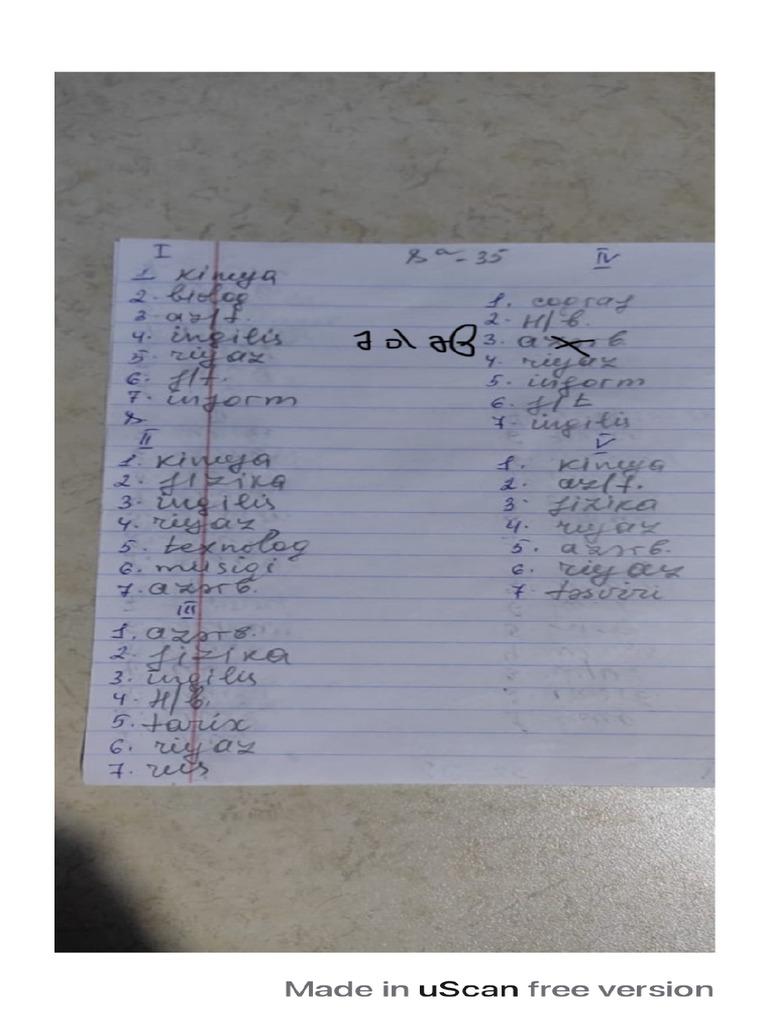 I
1. kimya
2. biolog
3. az/t.
4. ingilis
5. riyaz
6. f/t.
7. inform
8
II
1. kimya
2. fizika
3. ingilis
4. riyaz
5. texnolog
6. musiqi
7. azər b.
III
1. azər b.
2. fizika
3. ingilis
4. H/b.
5. tarix
6. riyaz
7. rus
8ᵃ - 35
IV
1. coğraf
2. H/b.
3. azər b
4. riyaz
5. inform
6. f/t
7. ingilis
V
1. kimya
2. az/t.
3. fizika
4. riyaz
5. azər b.
6. riyaz
7. təsviri
Made in uScan free version